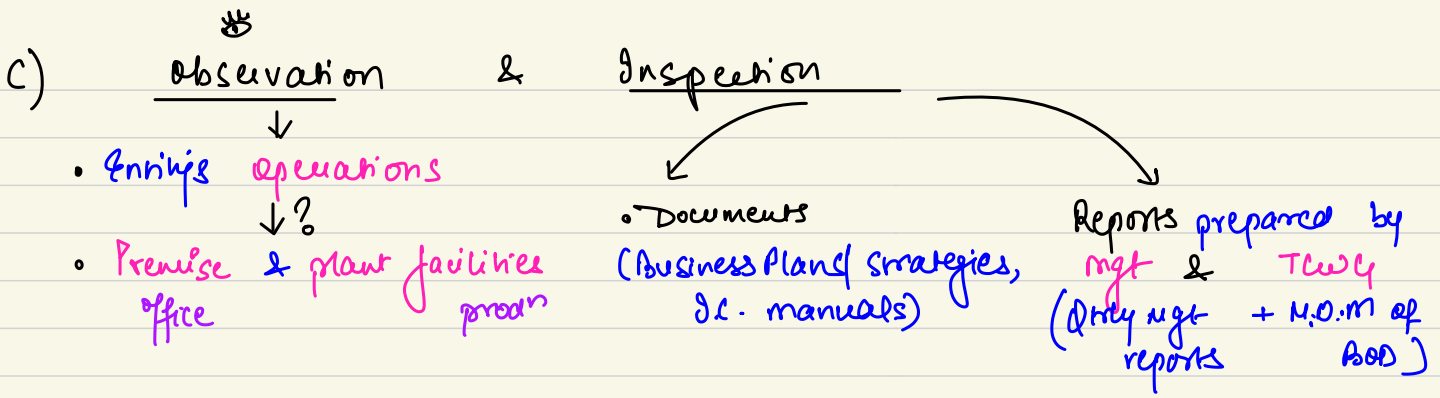 C) Observation & Inspection
• Entity's operations
?
• Premise & plant facilities
office prodn
• Documents
(Business Plans/ Strategies,
I.C. manuals)
Reports prepared by
mgt & TCWG
(Qrtly mgt + M.O.M of
reports BOD)